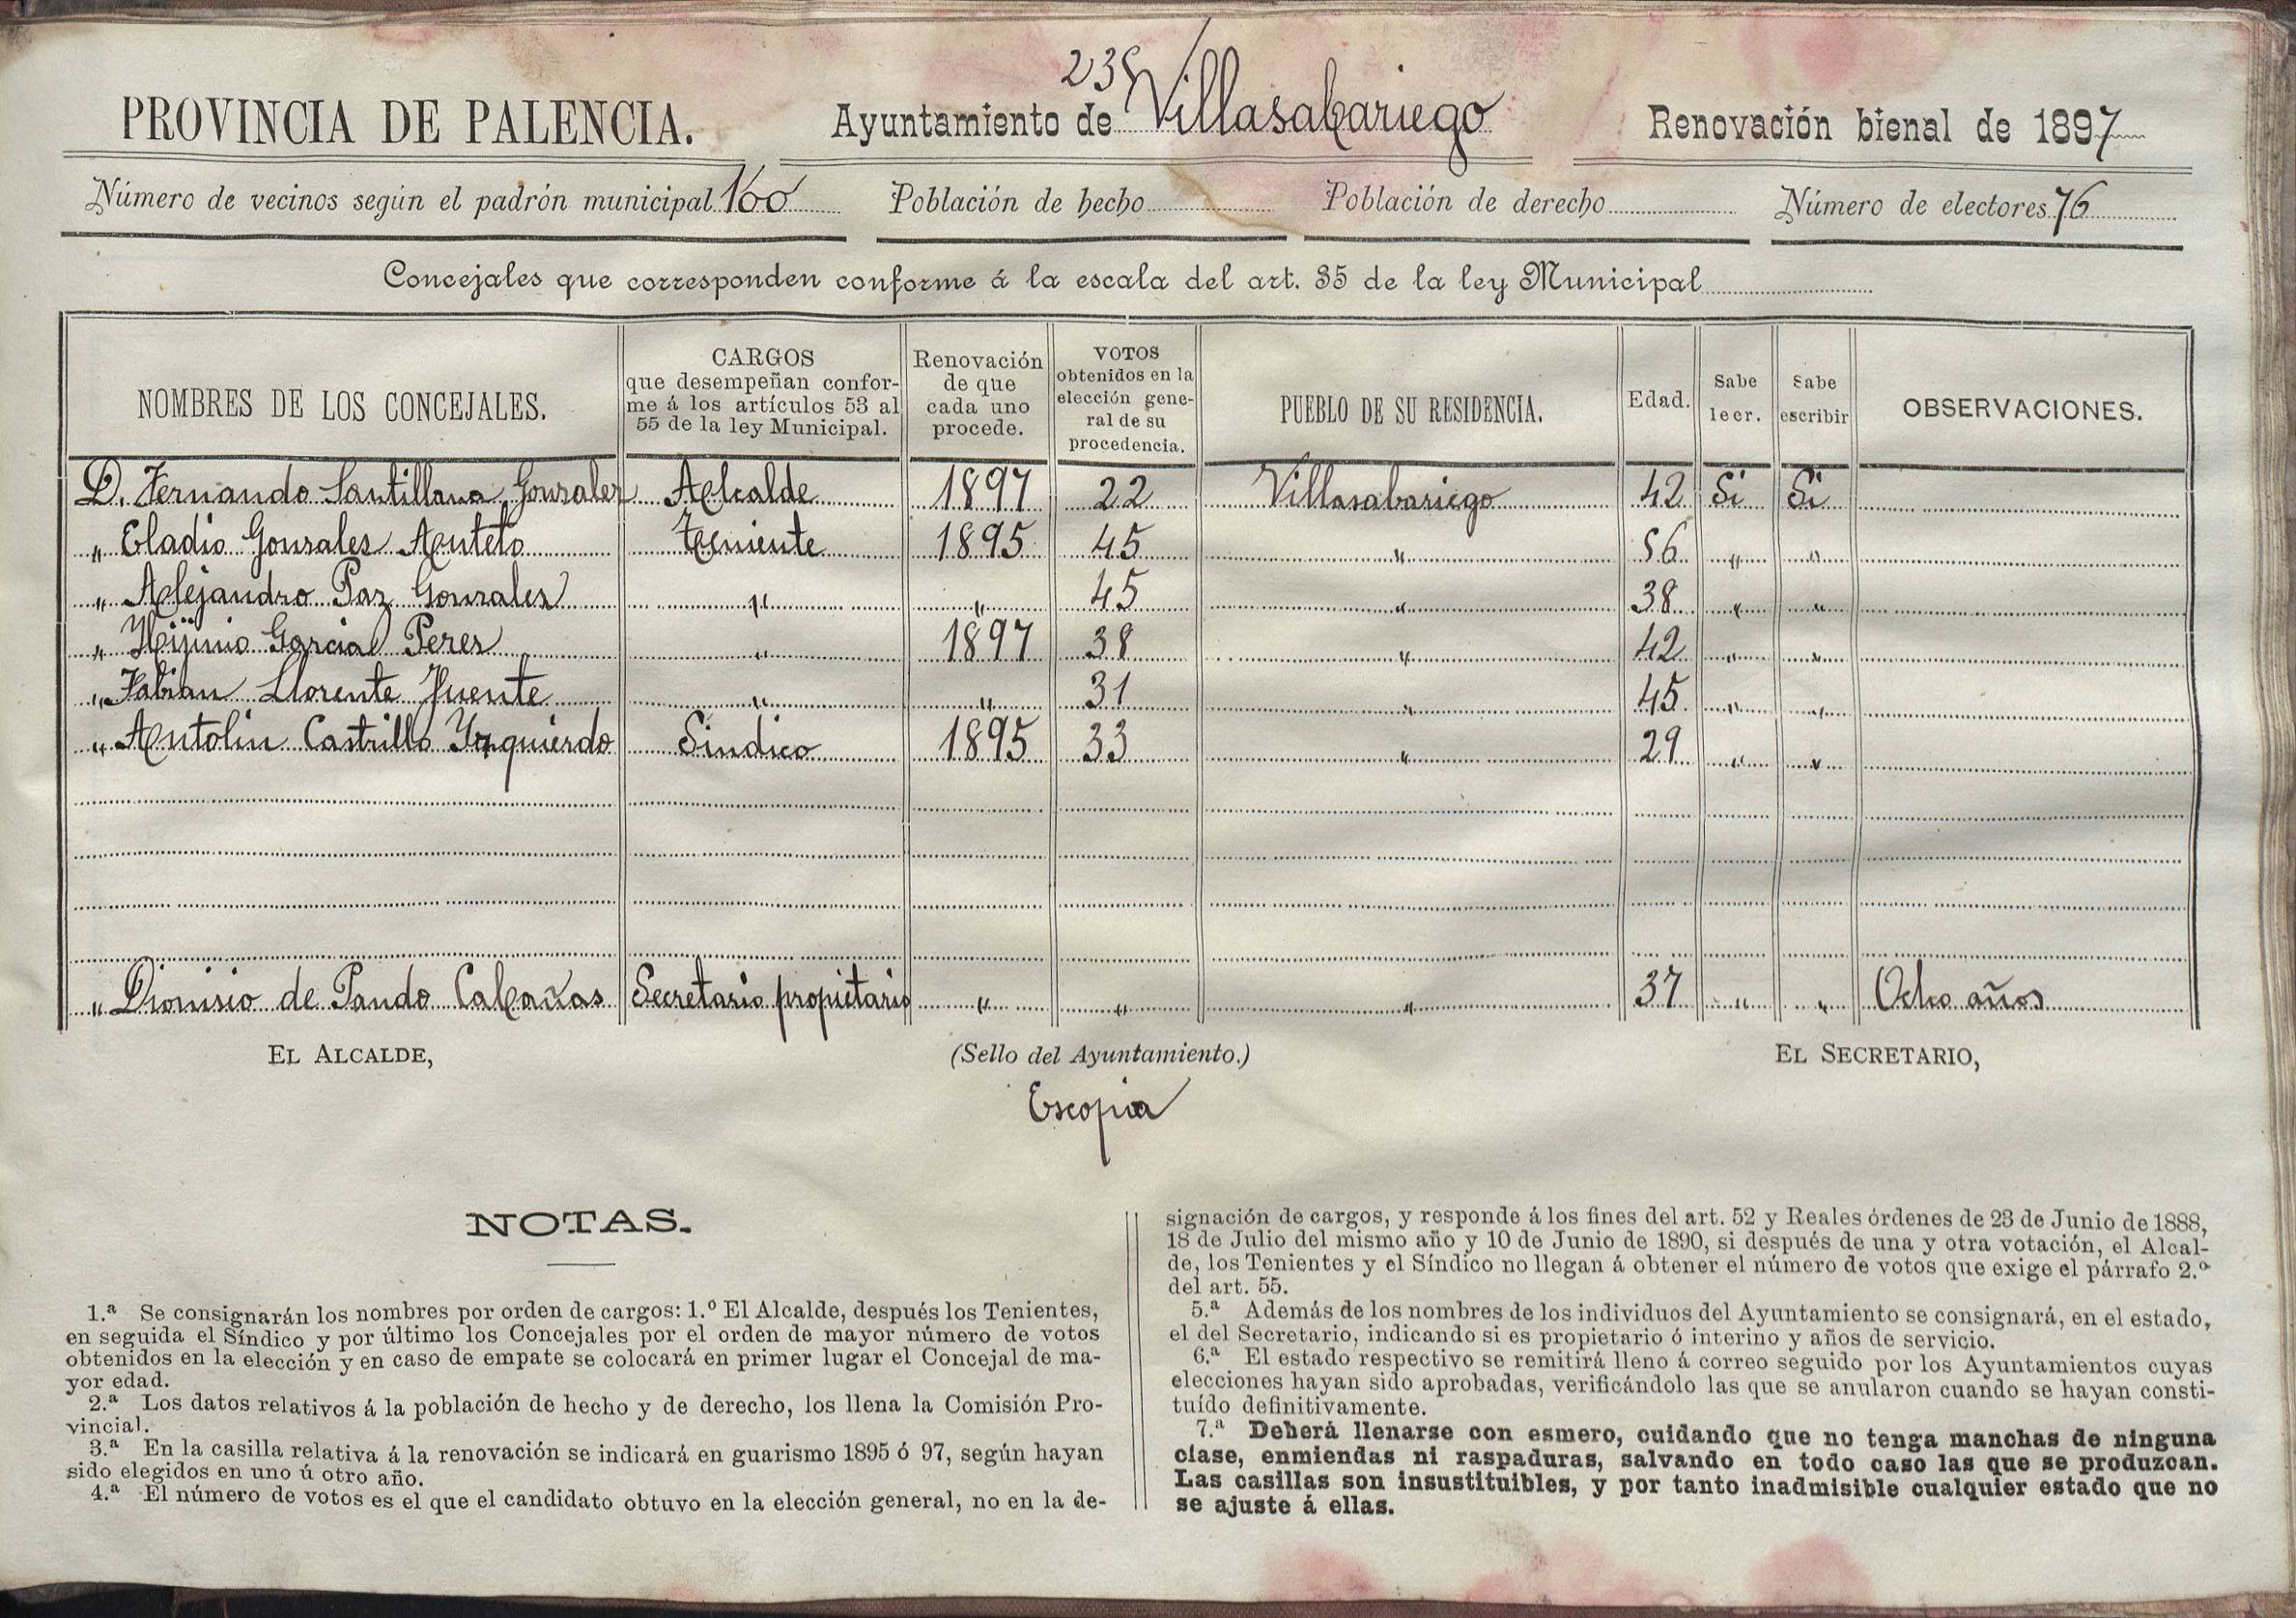 238
PROVINCIA DE PALENCIA. Ayuntamiento de Villasabariego Renovación bienal de 1897
Número de vecinos según el padrón municipal 160 Población de hecho Población de derecho Número de electores 76
Concejales que corresponden conforme á la escala del art. 35 de la ley Municipal
NOMBRES DE LOS CONCEJALES. CARGOS que desempeñan confor-me á los artículos 53 al 55 de la ley Municipal. Renovación de que cada uno procede. VOTOS obtenidos en la elección gene-ral de su procedencia. PUEBLO DE SU RESIDENCIA. Edad. Sabe leer. Sabe escribir OBSERVACIONES.
D. Fernando Santillana Gonzalez Alcalde 1897 22 Villasabariego 42 Si Si
" Eladio Gonzales Autelo Teniente 1895 45 " 56 " "
" Alejandro Paz Gonzales " " 45 " 38 " "
" Hijinio Garcia Peres " 1897 38 " 42 " "
" Fabian Llorente Fuente " " 31 " 45 " "
" Antolin Castrillo Yzquierdo Sindico 1895 33 " 29 " "
" Dionisio de Pando Calzadas Secretario propietario " " " 37 " " Ocho años
EL ALCALDE, (Sello del Ayuntamiento.) EL SECRETARIO,
Escopia
NOTAS.
1.ª Se consignarán los nombres por orden de cargos: 1.º El Alcalde, después los Tenientes,
en seguida el Síndico y por último los Concejales por el orden de mayor número de votos
obtenidos en la elección y en caso de empate se colocará en primer lugar el Concejal de ma-
yor edad.
2.ª Los datos relativos á la población de hecho y de derecho, los llena la Comisión Pro-
vincial.
3.ª En la casilla relativa á la renovación se indicará en guarismo 1895 ó 97, según hayan
sido elegidos en uno ú otro año.
4.ª El número de votos es el que el candidato obtuvo en la elección general, no en la de-
signación de cargos, y responde á los fines del art. 52 y Reales órdenes de 23 de Junio de 1888,
18 de Julio del mismo año y 10 de Junio de 1890, si después de una y otra votación, el Alcal-
de, los Tenientes y el Síndico no llegan á obtener el número de votos que exige el párrafo 2.º
del art. 55.
5.ª Además de los nombres de los individuos del Ayuntamiento se consignará, en el estado,
el del Secretario, indicando si es propietario ó interino y años de servicio.
6.ª El estado respectivo se remitirá lleno á correo seguido por los Ayuntamientos cuyas
elecciones hayan sido aprobadas, verificándolo las que se anularon cuando se hayan consti-
tuído definitivamente.
7.ª Deberá llenarse con esmero, cuidando que no tenga manchas de ninguna
clase, enmiendas ni raspaduras, salvando en todo caso las que se produzcan.
Las casillas son insustituibles, y por tanto inadmisible cualquier estado que no
se ajuste á ellas.